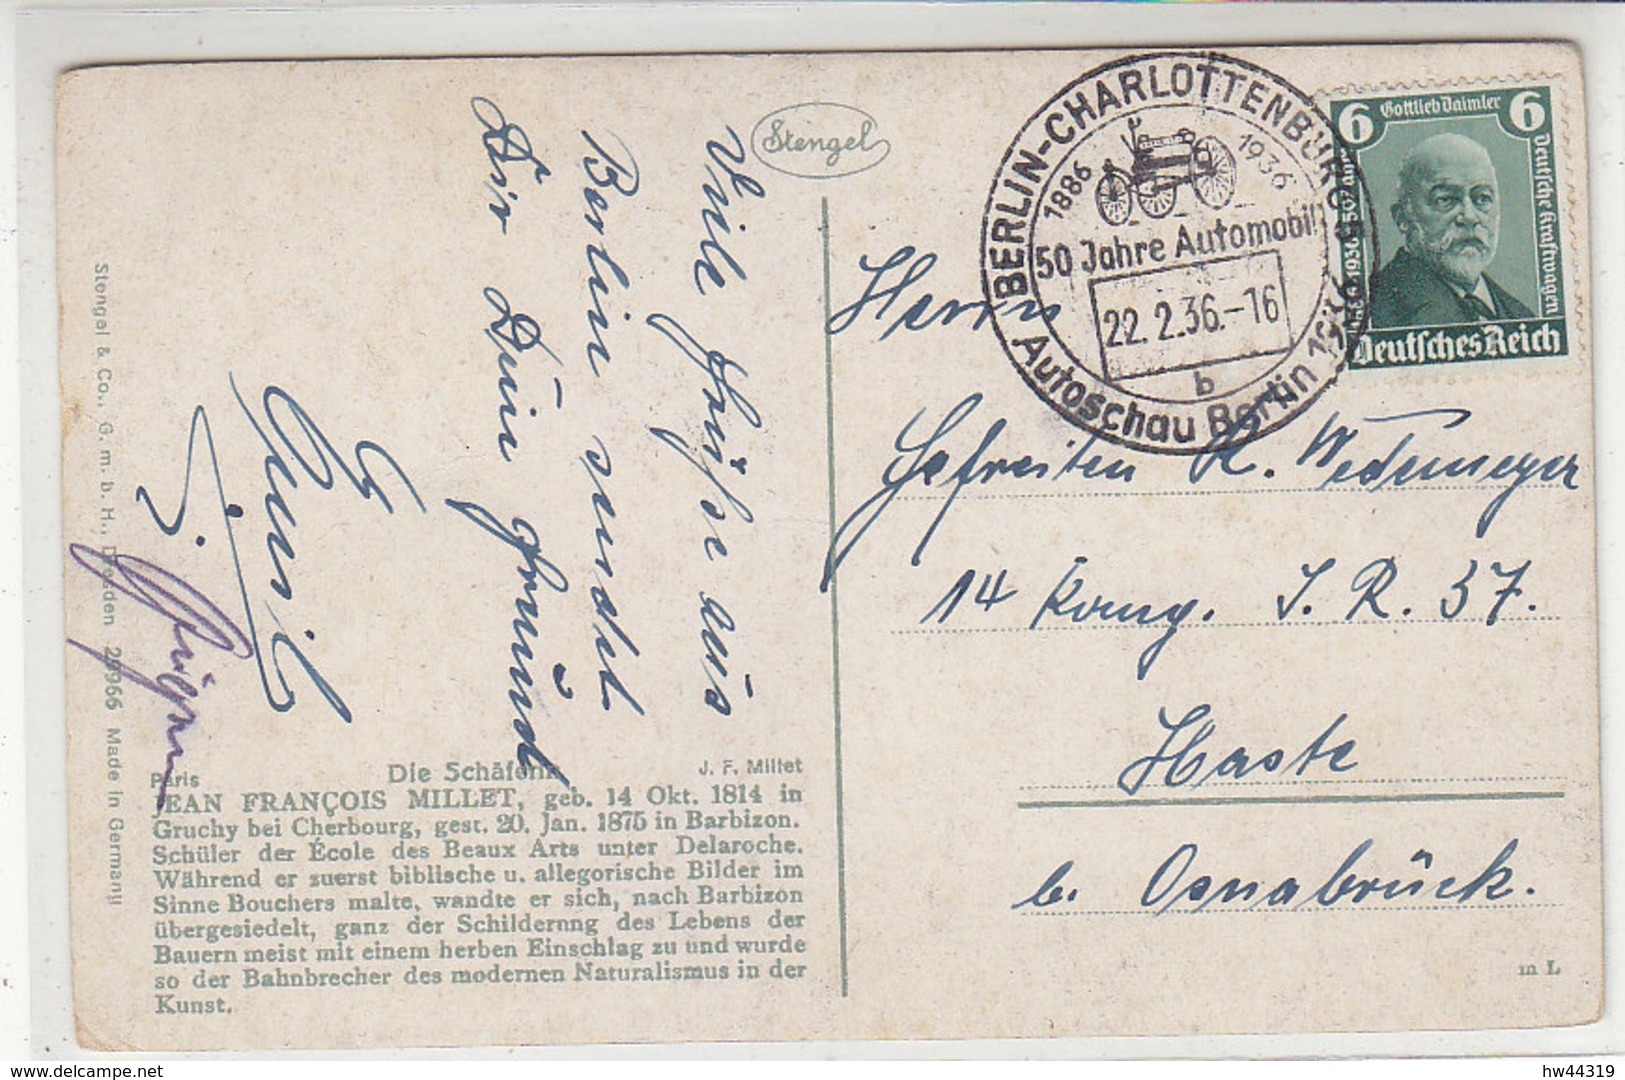 Stengel
Viele Grüße aus
Berlin sendet
Dir Dein Freund
Emil
Stengel & Co., G. m. b. H., Dresden 29966 Made in Germany
Paris Die Schäferin J. F. Millet
JEAN FRANÇOIS MILLET, geb. 14 Okt. 1814 in
Gruchy bei Cherbourg, gest. 20. Jan. 1875 in Barbizon.
Schüler der École des Beaux Arts unter Delaroche.
Während er zuerst biblische u. allegorische Bilder im
Sinne Bouchers malte, wandte er sich, nach Barbizon
übergesiedelt, ganz der Schilderung des Lebens der
Bauern meist mit einem herben Einschlag zu und wurde
so der Bahnbrecher des modernen Naturalismus in der
Kunst.
BERLIN-CHARLOTTENBURG 5
1886 1936
50 Jahre Automobil
22.2.36.-16
b
Autoschau Berlin 1936
6 Gottlieb Daimler 6
1936 50 Jahre
Deutsche Kraftwagen
Deutsches Reich
Herrn
Gefreiten H. Wedemeyer
14 Komp. I. R. 37.
Haste
b. Osnabrück.
m L
hw44319
delcampe.net